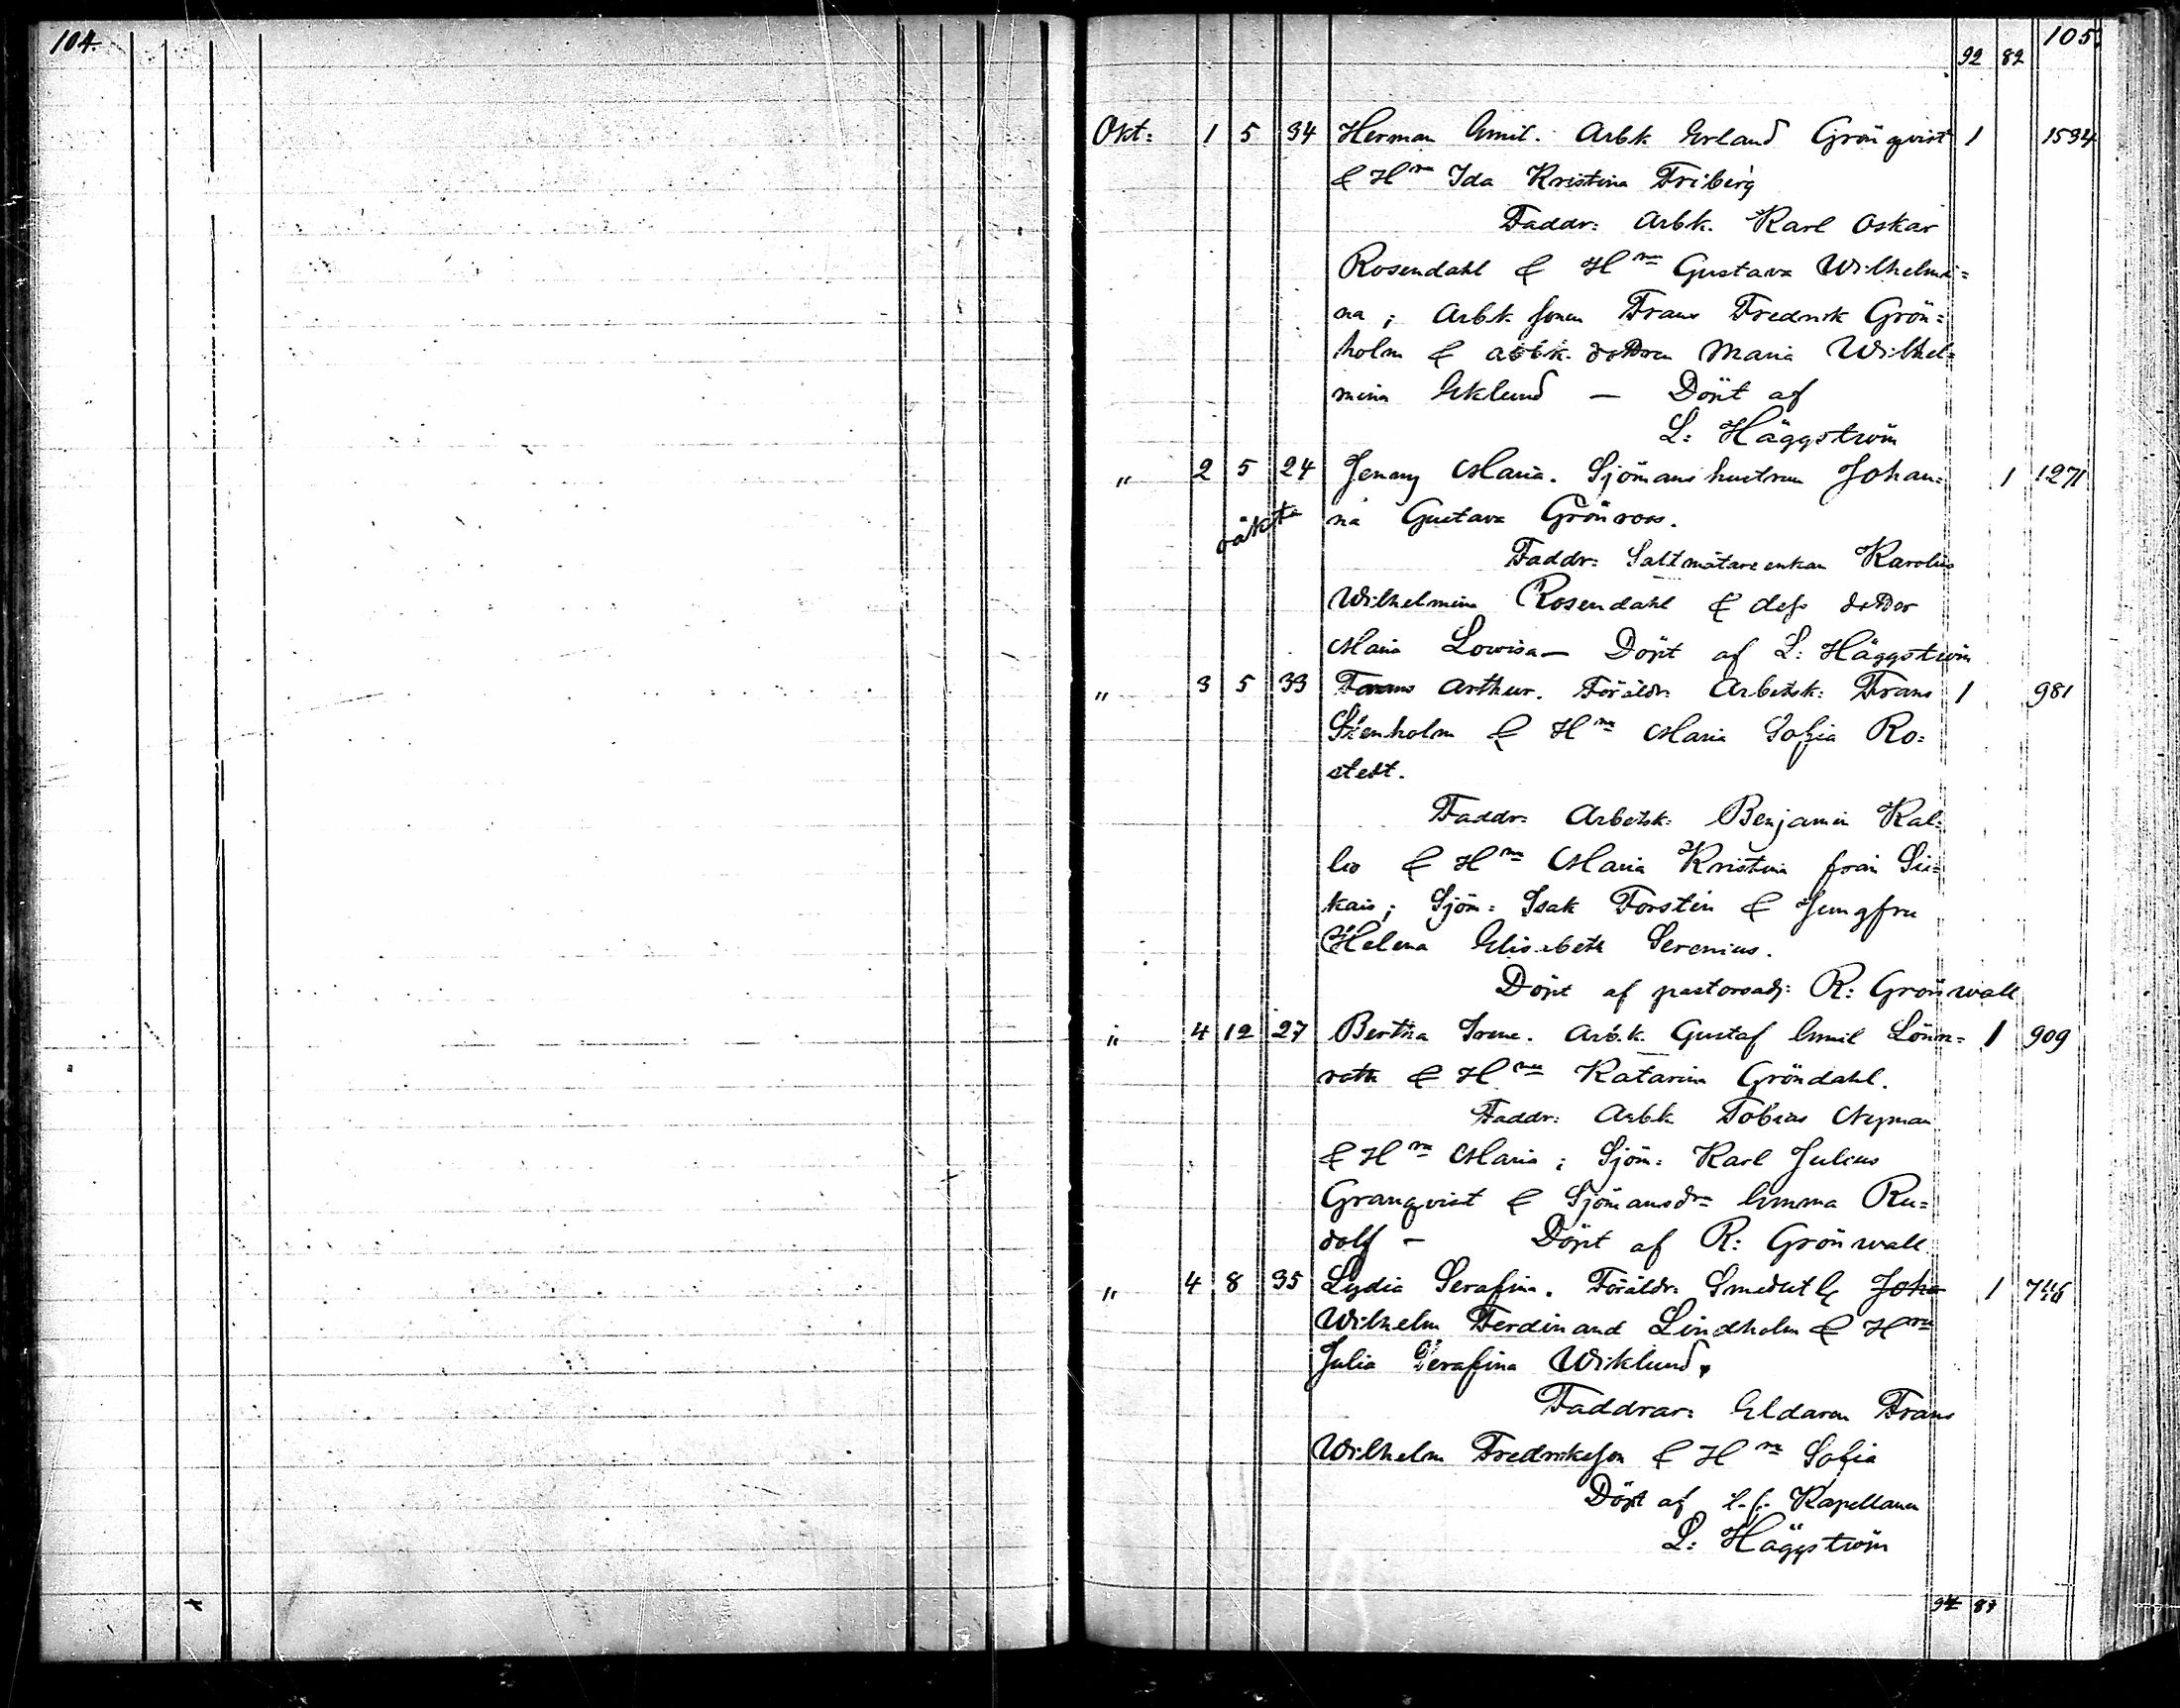 104.
105.
92 82
Okt: 1 5 34 Herman Emil. Arbk. Erland Grönqvist 1 1534
& Hru Ida Kristina Friberg
Faddr: Arbk. Karl Oskar
Rosendahl & Hru Gustava Wilhelmi=
na; Arbk. sonen Frans Fredrik Grön=
holm & arbk. dottren Maria Wilhel=
mina Eklund — Döpt af
L: Häggström
" 2 5 24 Jenny Maria. Sjömanshustrun Johan= 1 1271
oäkta na Gustava Grönroos.
Faddr: Saltmätareenkan Karolina
Wilhelmina Rosendahl & dess dotter
Maria Lovisa — Döpt af L: Häggström
" 3 5 33 Frans Arthur. Föräldr: Arbetsk: Frans 1 981
Stenholm & Hru Maria Sofia Ro=
stedt.
Faddr: Arbetsk: Benjamin Kal=
lio & Hru Maria Kristina från Sii=
kais; Sjöm: Isak Forstén & Jungfru
Helena Elisabeth Serenius.
Döpt af pastorsadj: R: Grönwall
" 4 12 27 Bertha Irene. Arb.k. Gustaf Emil Lönn= 1 909
roth & Hru Katarina Gröndahl.
Faddr: Arbk Tobias Nyman
& Hru Maria; Sjöm: Karl Julius
Granqvist & Sjömansdr Emma Ru=
dolf — Döpt af R: Grönwall
" 4 8 35 Lydia Serafina. Föräldr: Joha 1
Wilhelm Ferdinand Lindholm & Hru
Julia Serafina Wiklund.
Faddrar: Eldaren Frans
Wilhelm Fredriksson & Hru Sofia
Döpt af t.f. Kapellanen
L: Häggström
94